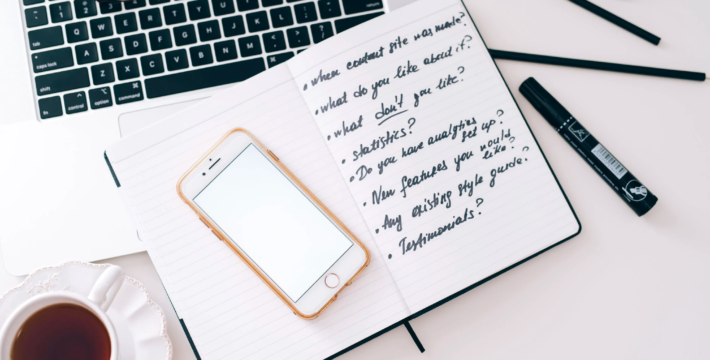 • when content site was made?
• what do you like about it?
• what don't you like?
• statistics?
• Do you have analytics
set up?
• New features you would
like?
• Any existing style guide?
• Testimonials?
tab
Q
W
E
R
T
Y
U
I
O
P
caps lock
A
S
D
F
G
H
J
K
L
shift
Z
X
C
V
B
N
M
fn
control
option
command